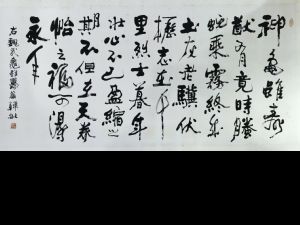 神龜雖壽
猶有竟時騰
蛇乘霧終為
土灰老驥伏
櫪志在千
里烈士暮年
壯心不已盈縮
期不但在天養
怡之福可得
永年
右魏武龜雖壽